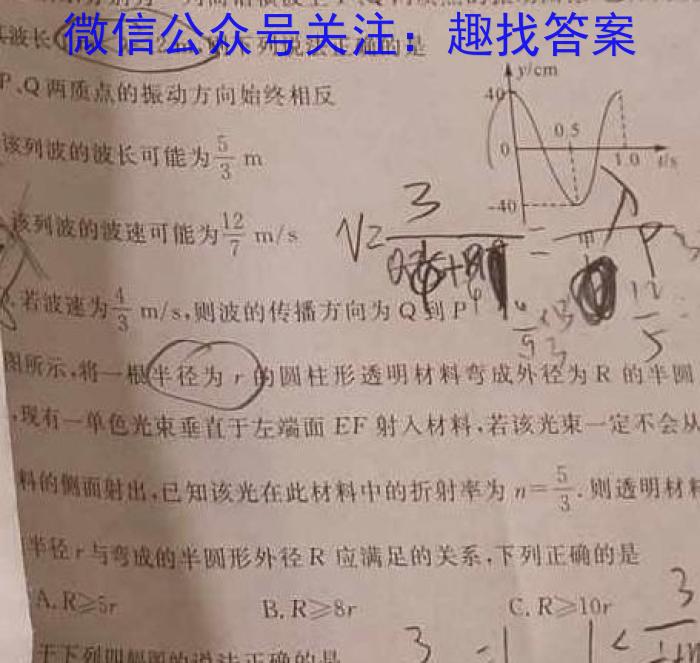 微信公众号关注：趣找答案
波长
列说法正确的是
P、Q两质点的振动方向始终相反
y/cm
40
0
0.5
1.0
t/s
-40
该列波的波长可能为5/3 m
该列波的波速可能为12/7 m/s
若波速为4/3 m/s,则波的传播方向为Q到P
3
V=
=
λ
12
5
图所示,将一根半径为r的圆柱形透明材料弯成外径为R的半圆
,现有一单色光束垂直于左端面EF射入材料,若该光束一定不会从
料的侧面射出,已知该光在此材料中的折射率为n=5/3.则透明材料
半径r与弯成的半圆形外径R应满足的关系,下列正确的是
A.R≥5r
B.R≥8r
C.R≥10r
3
3
于下列四幅图的说法正确的是